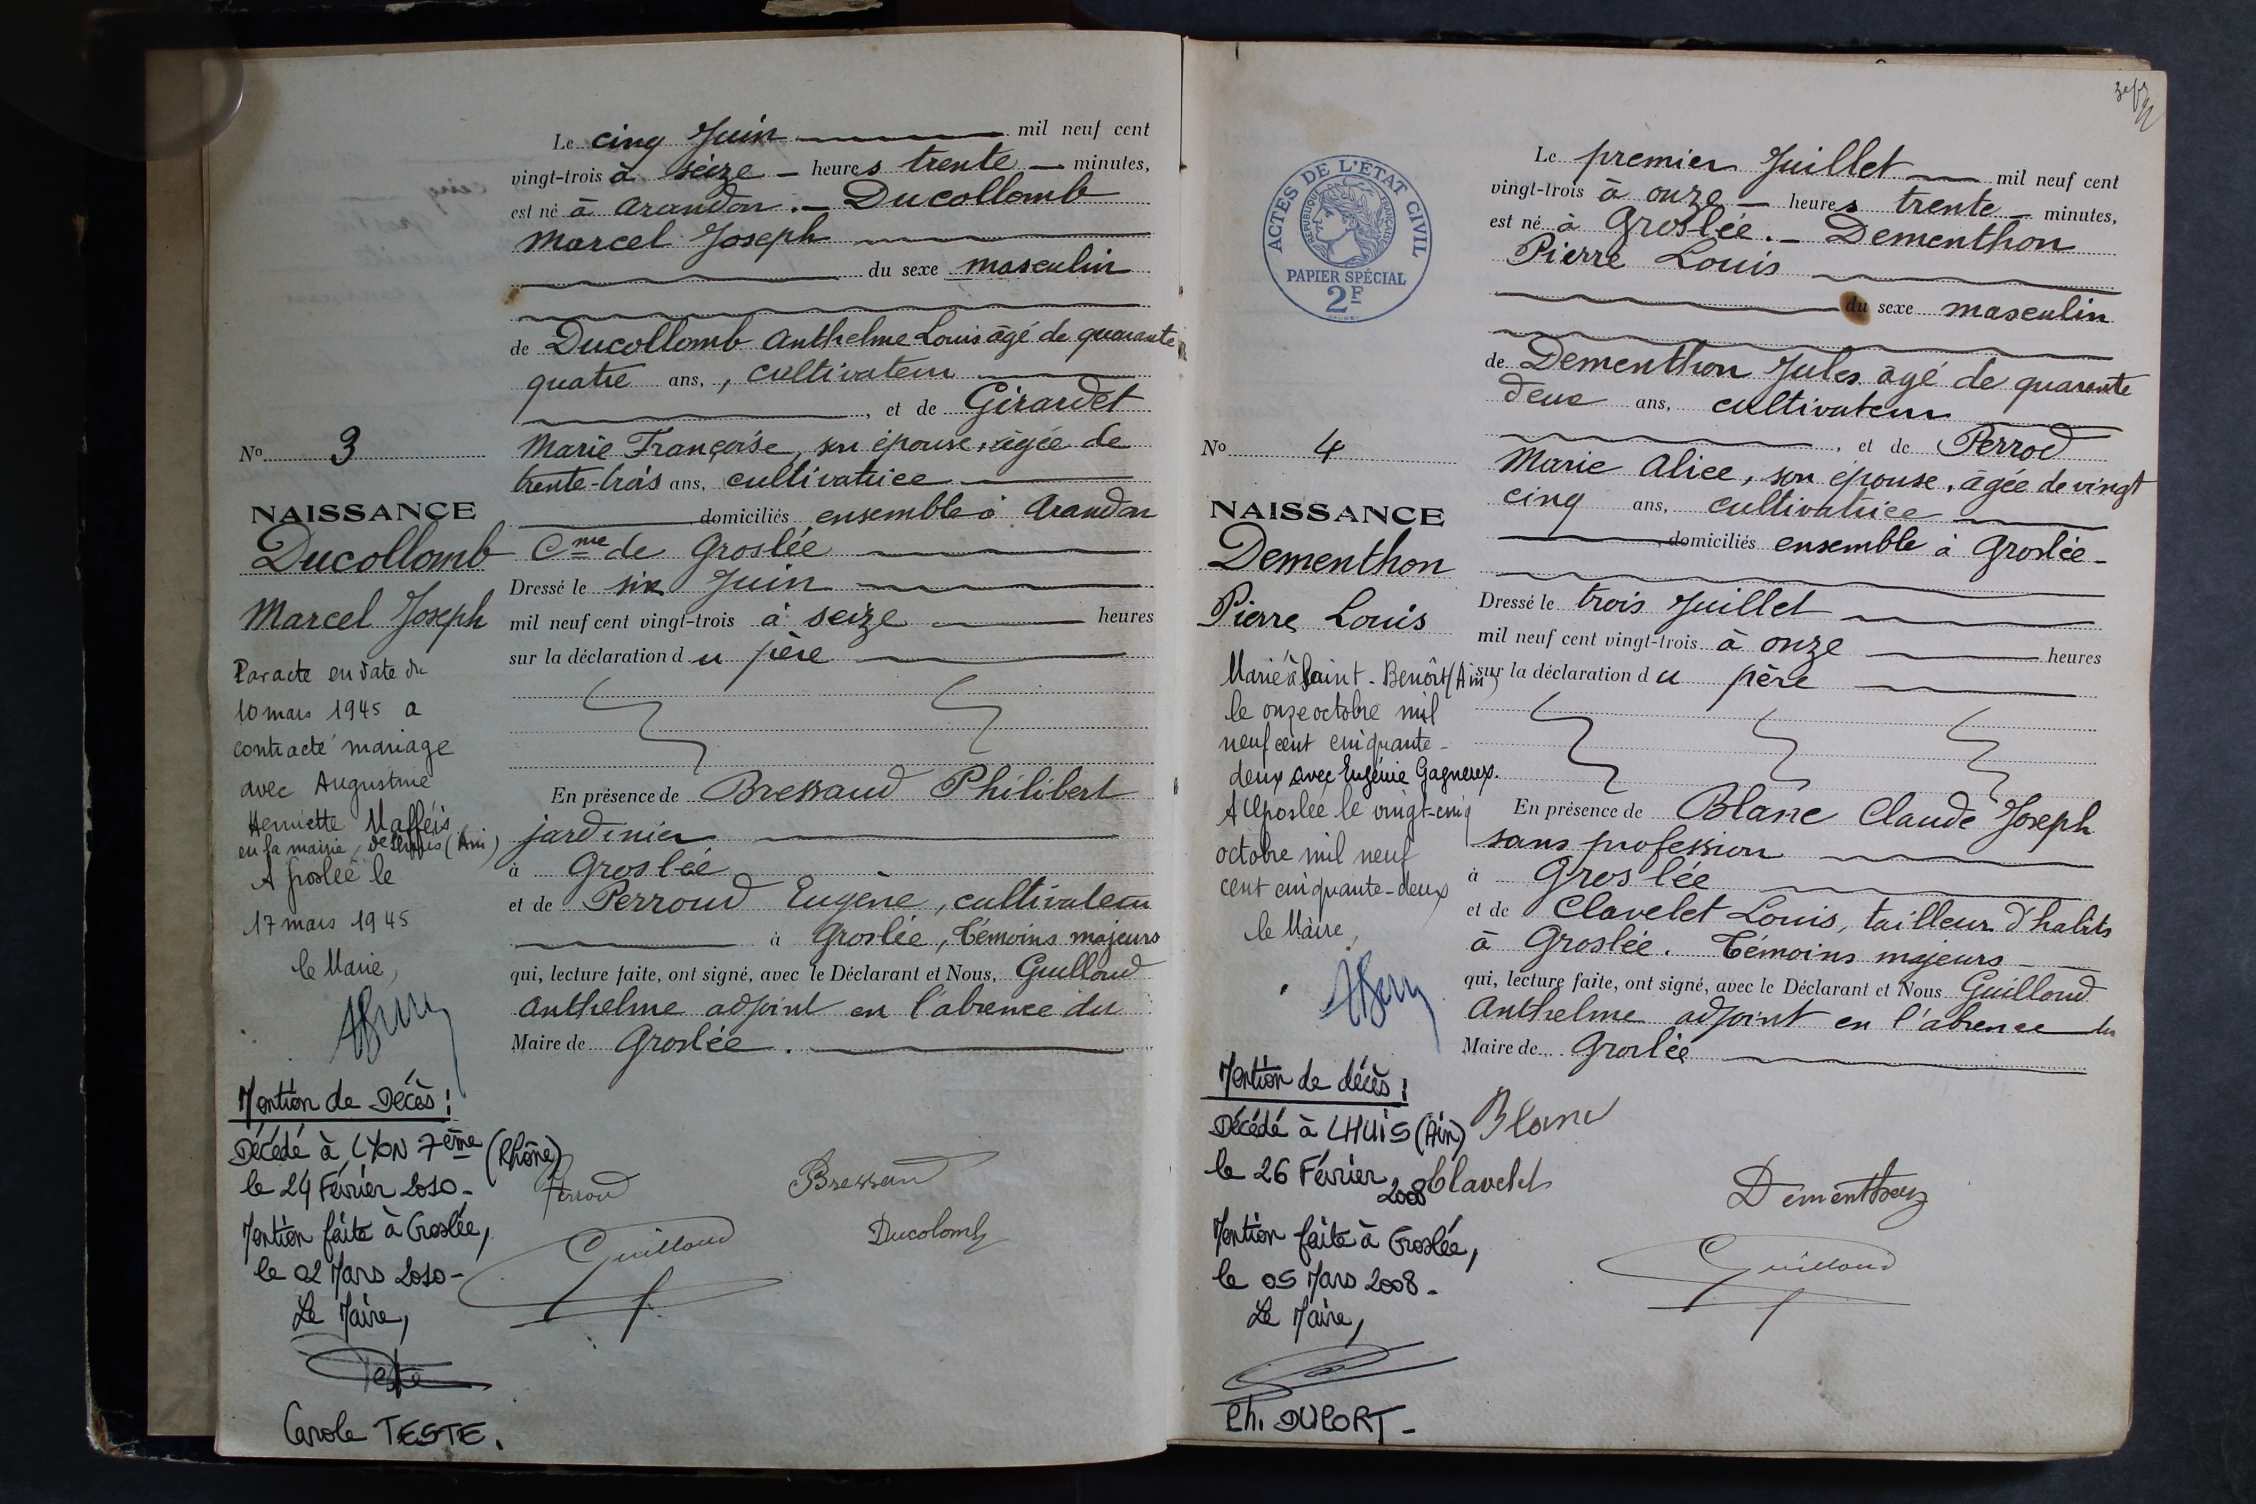 Le cinq Juin mil neuf cent
vingt-trois à seize heures trente minutes,
est né à Arandon. Ducollomb
Marcel Joseph
du sexe masculin
de Ducollomb Anthelme Louis âgé de quarante
quatre ans, cultivateur
, et de Girardet
Marie Françoise, son épouse, âgée de
trente-trois ans, cultivatrice
domiciliés ensemble à Arandon
Cme de Groslée
Dressé le six Juin
mil neuf cent vingt-trois à seize heures
sur la déclaration du père
En présence de Bressaud Philibert
jardinier
à Groslée
et de Perroud Eugène, cultivateur
à Groslée, Témoins majeurs
qui, lecture faite, ont signé, avec le Déclarant et Nous, Guilloud
Anthelme adjoint en l'absence du
Maire de Groslée.
No 3
NAISSANCE
Ducollomb
Marcel Joseph
Par acte en date du
10 mars 1945 a
contracté mariage
avec Augustine
Henriette Maffeis
en la mairie de Lhuis (Ain)
A Groslée le
17 mars 1945
le Maire,
Mention de Décès :
Décédé à LYON 7ème (Rhône)
le 24 Février 2010 -
Mention faite à Groslée,
le 02 Mars 2010 -
Le Maire,
Teste
Carole TESTE.
Perroud
Bressaud
Guilloud
Ducolomb
Le premier Juillet mil neuf cent
vingt-trois à onze heures trente minutes,
est né à Groslée. Dementhon
Pierre Louis
du sexe masculin
de Dementhon Jules âgé de quarante
deux ans, cultivateur
, et de Perrod
Marie Alice, son épouse, âgée de vingt
cinq ans, cultivatrice
, domiciliés ensemble à Groslée -
Dressé le trois Juillet
mil neuf cent vingt-trois à onze heures
sur la déclaration du père
En présence de Blanc Claude Joseph
sans profession
à Groslée
et de Clavelet Louis, tailleur d'habits
à Groslée. Témoins majeurs
qui, lecture faite, ont signé, avec le Déclarant et Nous Guilloud
Anthelme adjoint en l'absence du
Maire de Groslée
ACTES DE L'ETAT CIVIL
REPUBLIQUE FRANÇAISE
PAPIER SPÉCIAL
2F
No 4
NAISSANCE
Dementhon
Pierre Louis
Marié à Saint-Benoît (Ain)
le onze octobre mil
neuf cent cinquante-
deux avec Eugénie Gagneux.
A Groslée le vingt-cinq
octobre mil neuf
cent cinquante-deux
le Maire,
Mention de décès :
Décédé à LHUIS (Ain)
le 26 Février 2008
Mention faite à Groslée,
le 05 Mars 2008 -
Le Maire,
Ch. DUPORT -
Blanc
Clavelet
Dementhon
Guilloud